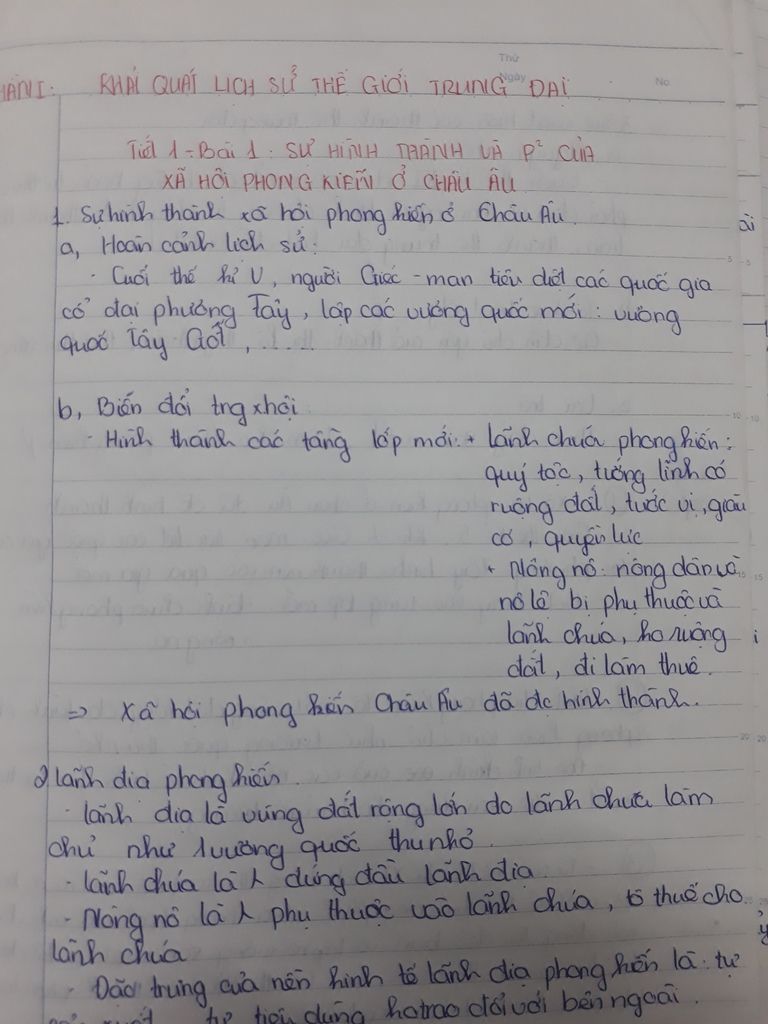 HẦN I: KHÁI QUÁT LỊCH SỬ THẾ GIỚI TRUNG ĐẠI
Thứ
Ngày
No
Tiết 1 - Bài 1: SỰ HÌNH THÀNH VÀ P² CỦA
XÃ HỘI PHONG KIẾN Ở CHÂU ÂU
1. Sự hình thành xã hội phong kiến ở Châu Âu.
a, Hoàn cảnh lịch sử:
- Cuối thế kỉ V, người Giéc - man tiêu diệt các quốc gia
cổ đại phương Tây, lập các vương quốc mới: vương
quốc Tây Gốt, ......
b, Biến đổi trg xhội
- Hình thành các tầng lớp mới: + lãnh chúa phong kiến:
quý tộc, tướng lĩnh có
ruộng đất, tước vị, giàu
có, quyền lực
+ Nông nô: nông dân và
nô lệ bị phụ thuộc và
lãnh chúa, ko ruộng
đất, đi làm thuê.
=> Xã hội phong kiến Châu Âu đã đc hình thành.
2 lãnh địa phong kiến.
- lãnh địa là vùng đất rộng lớn do lãnh chúa làm
chủ như 1 vương quốc thu nhỏ.
- lãnh chúa là λ đứng đầu lãnh địa
- Nông nô là λ phụ thuộc vào lãnh chúa, tô thuế cho
lãnh chúa
- Đặc trưng của nền kinh tế lãnh địa phong kiến là: tự
tự tiêu dùng ko trao đổi với bên ngoài.